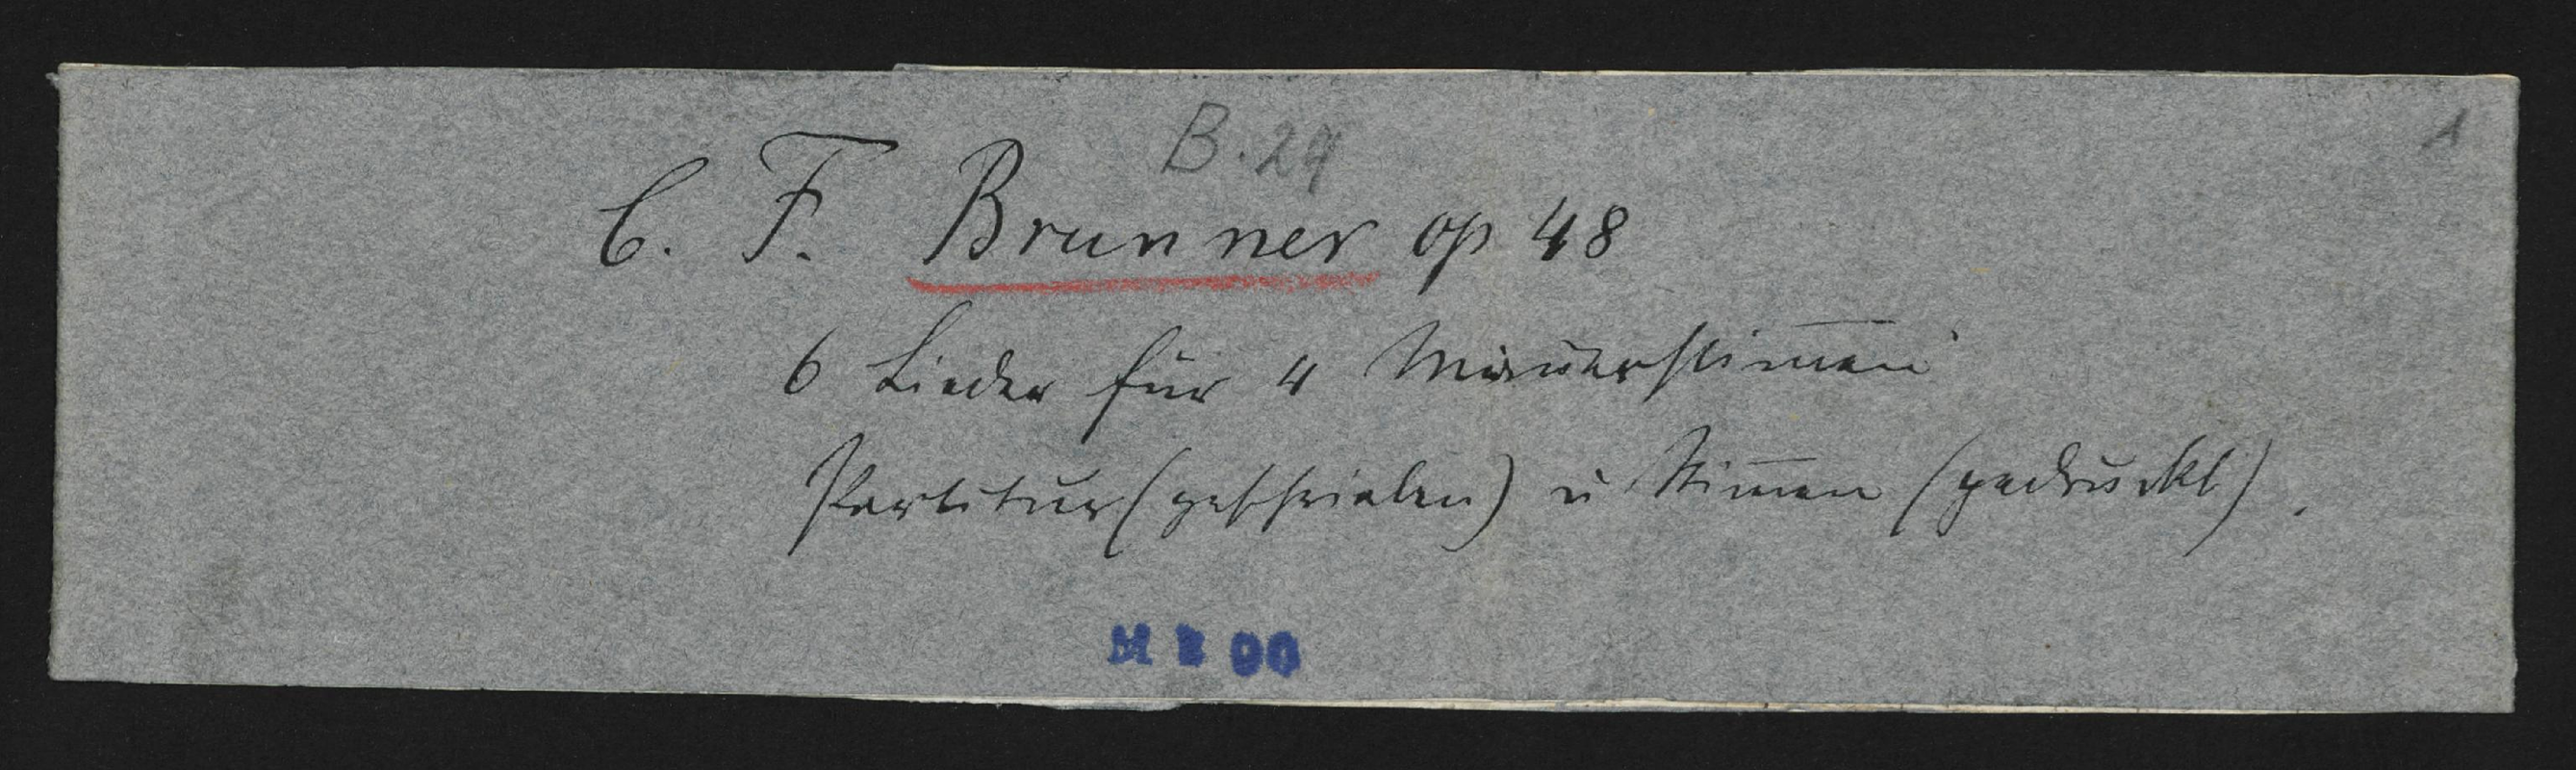 B. 29
1
C. F. Brunner op 48
6 Lieder für 4 Männerstim̅en
Partitur (geschrieben) u Stim̅en (gedruckt).